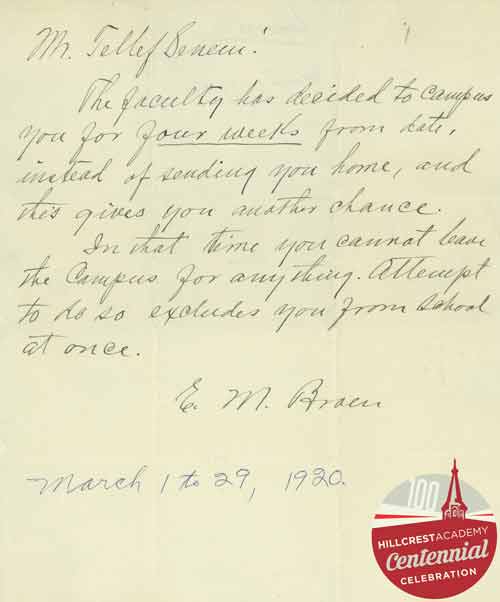 Mr. Tellef Senem!
The faculty has decided to campus
you for four weeks from date,
instead of sending you home, and
this gives you another chance.
In that time you cannot leave
the Campus for anything. Attempt
to do so excludes you from school
at once.
E. M. Broen
March 1 to 29, 1920.
100
HILLCREST ACADEMY
Centennial
CELEBRATION